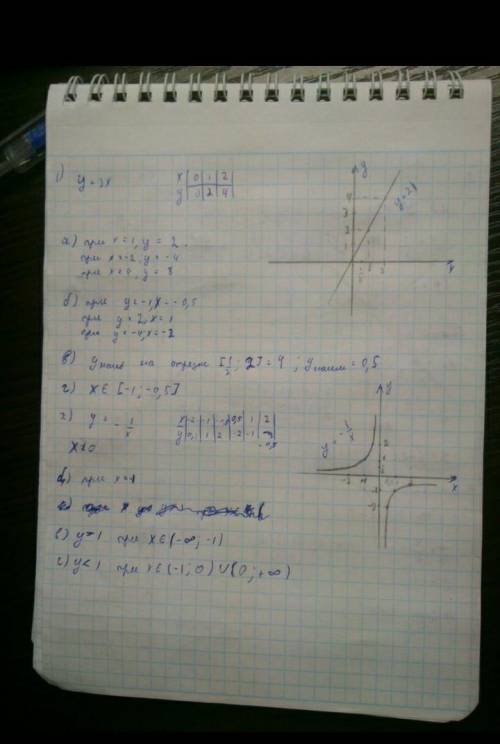 1) y = 2x
x | 0 | 1 | 2
y | 0 | 2 | 4
y
y=2x
4
3
2
1
x
а) при x=1, y = 2.
при x=-2, y=-4
при x=4, y = 8
б) при y=-1, x=-0,5
при y=2, x=1
при y=-4, x=-2
в) y наиб на отрезке [;2]=4 ; y наим = 0,5
г) x∈[-1;-0,5]
2) y = -1/x
x | -2 | -1 | | 0,5 | 1 | 2
y | | 1 | 2 | -2 | -1 | -0,5
x≠0
y
y=-1/x
x
б) при x=
в) y>1 при x∈(-∞;-1)
г) y<1 при x∈(-1;0)∪(0;+∞)